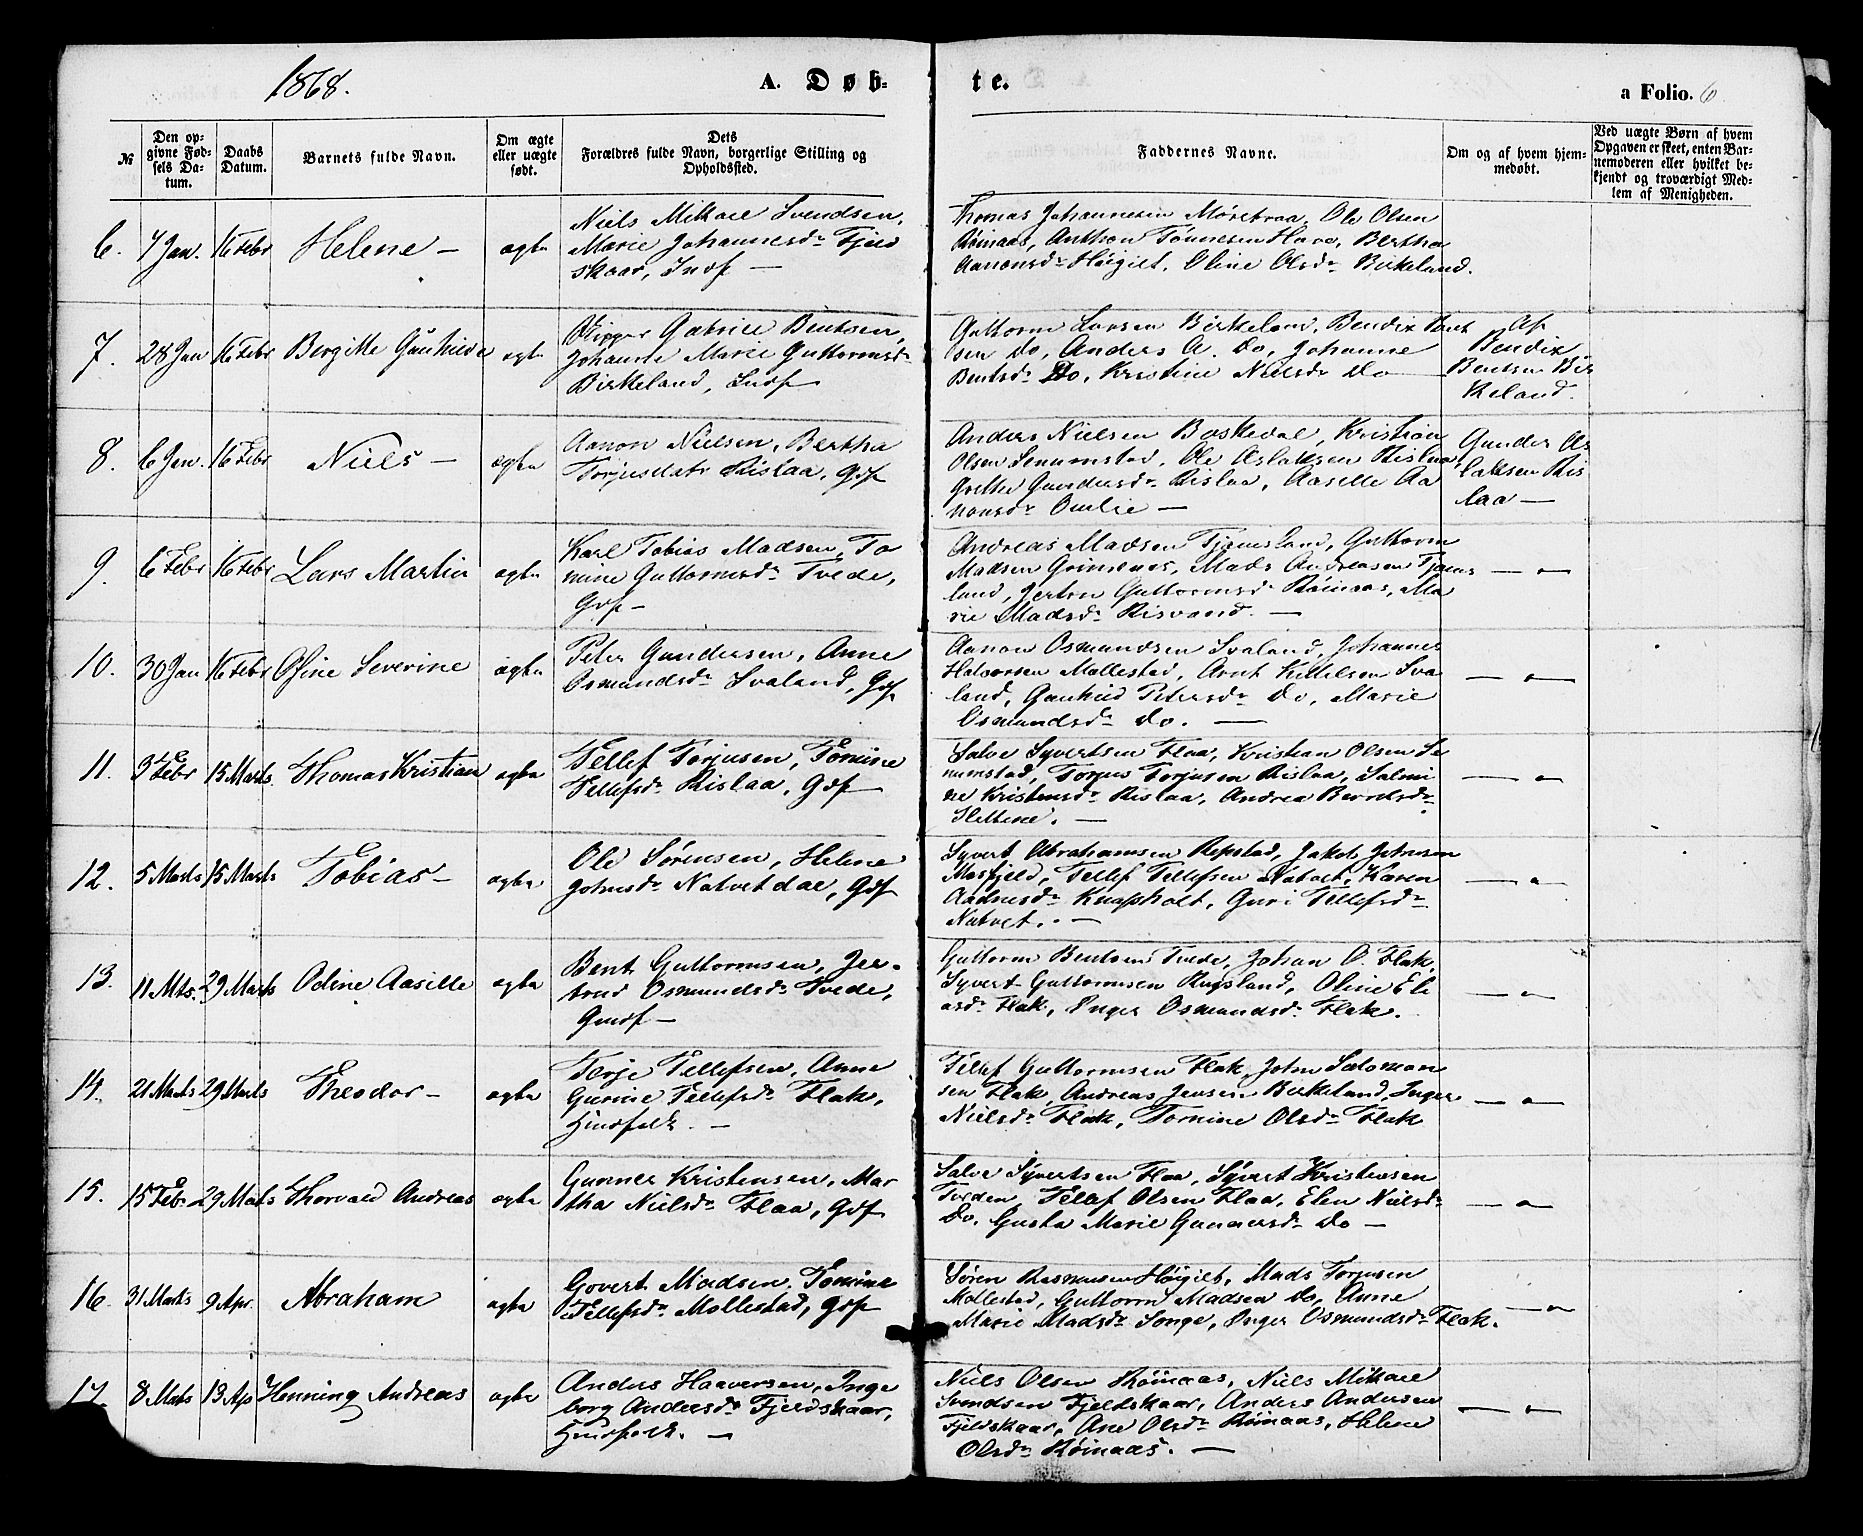 1868.
A. Døb-
te.
a Folio. 6
№
Den op-
givne Fød-
sels Da-
tum.
Daabs
Datum.
Barnets fulde Navn.
Om ægte
eller uægte
født.
Dets
Forældres fulde Navn, borgerlige Stilling og
Opholdssted.
Faddernes Navne.
Om og af hvem hjem-
medøbt.
Ved uægte Børn af hvem
Opgaven er skeet, enten Bar-
nemoderen eller hvilket be-
kjendt og troværdigt Med-
lem af Menigheden.
6. 7 Jan. 16 Febr Helene – ægte
Niels Mikael Svendsen,
Marie Johannesdr Fjeld
skaar, Indf –
Thomas Johannesen Møretraa, Ole Olsen
Røinaas, Anthon Tønnesen Have, Bertha
Aanonsdr Høigilt, Oline Olsdr Birkeland.
7. 28 Jan 16 Febr Bergitte Gunhilde ægte
Gabriel Bentsen,
Johanne Marie Guttormsdr
Birkeland, Indf
Guttorm Larsen Birkeland, Bendix Bent
sen Do, Anders A. Do, Johanne
Bentsdr Do, Kristine Nielsdr Do
Af
Bendix
Bentsen Bir
keland.
8. 6 Jan. 16 Febr Niels – ægte
Aanon Nielsen, Bertha
Torjusdatr Rislaa, Gdf
Anders Nielsen Baskedal, Kristian
Olsen Senumstad, Ole Aslaksen Rislaa,
Grethe Gundersdr Rislaa, Aasille Aa
nonsdr Omlie –
Gunder As
laksen Ris
laa –
9. 6 Febr 16 Febr Lars Martin ægte
Karl Tobias Madsen, To
mine Guttormsdr Tvede,
Gdf –
Andreas Madsen Tjømesland, Guttorm
Madsen Grimenes, Mads Andreasen Tjømes
land, Jertru Guttormsd Røinaas, Ma
rie Madsdr Risvand. –
– " –
10. 30 Jan 16 Febr Oline Severine ægte
Peter Gundersen, Anne
Osmundsdr Svaland, Gdf
Aanon Osmundsen Svaland, Johannes
Halvorsen Mollestad, Arnt Kittelsen Sva
land, Gunhild Petersdr Do, Marie
Osmundsdr Do. –
– " –
11. 3 Febr 15 Marts. Thomas Kristian ægte
Tellef Torjusen, Tomine
Tellefsdr Rislaa, Gdf
Salve Syvertsen Flaa, Kristian Olsen Se
numstad, Torjus Torjusen Rislaa, Salmi
ne Kristensdr Rislaa, Andrea Berntsdr
–
– " –
12. 5 Marts 15 Marts Tobias – ægte
Ole Sørensen, Helene
Johnsdr Natvetdal, Gdf
Syvert Abrahamsen Repstad, Jakob Johnsen
Mosfjeld, Tellef Tellefsen Natvet, Karen
Aadnesdr Knapholt, Guri Tellefsdr
Natvet. –
– " –
13. 11 Mts. 29 Marts Odine Aasille ægte
Bent Guttormsen, Jer-
trud Osmundsdr Tvede,
Gmdf –
Guttorm Bentsen Tvede, Johan O. Flak,
Syvert Guttormsen Rugsland, Oline Eli
asdr Flak, Inger Osmundsdr Flak.
– " –
14. 21 Marts 29 Marts Theodor – ægte
Terje Tellefsen, Anne
Gurine Tellefsdr Flak,
Hmdfolk. –
Tellef Guttormsen Flak, John Salomon
sen Flak, Andreas Jensen Birkeland, Inger
Nielsdr Flak, Tomine Olsdr Flak
– " –
15. 15 Febr. 29 Marts Thorvald Andreas ægte
Gunner Kristensen, Mar
tha Nielsdr Flaa, Gdf
Salve Syvertsen Flaa, Syvert Kristensen
Tveden, Tellef Olsen Flaa, Elen Nielsdr
Do, Gusta Marie Gunnersdr Do –
– " –
16. 31 Marts 9 Apr. Abraham ægte
Govert Madsen, Tomine
Tellefsdr Mollestad, Gdf
Søren Rasmussen Høigilt, Mads Torjusen
Mollestad, Guttorm Madsen Do, Anne
Marie Madsdr Songe, Inger Osmundsdr Flak.
– " –
17. 8 Marts 13 Ap Henning Andreas ægte
Anders Haaversen, Inge
borg Andersdr Fjeldskaar,
Hmdfolk. –
Niels Olsen Røinaas, Niels Mikael
Svendsen Fjeldskaar, Anders Andersen
Fjeldskaar, Ane Olsdr Røinaas, Helene
Olsdr Røinaas. –
– " –